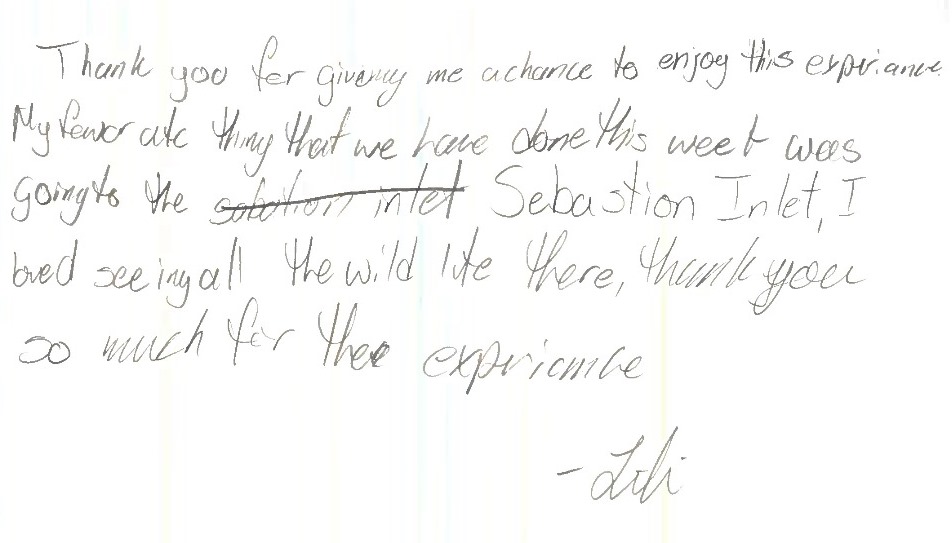 Thank you for giving me a chance to enjoy this expiriance
My favorate thing that we have done this week was
going to the sabation inlet Sebastion Inlet, I
loved seeing all the wild life there, thank you
so much for thee expiriance
- Lili